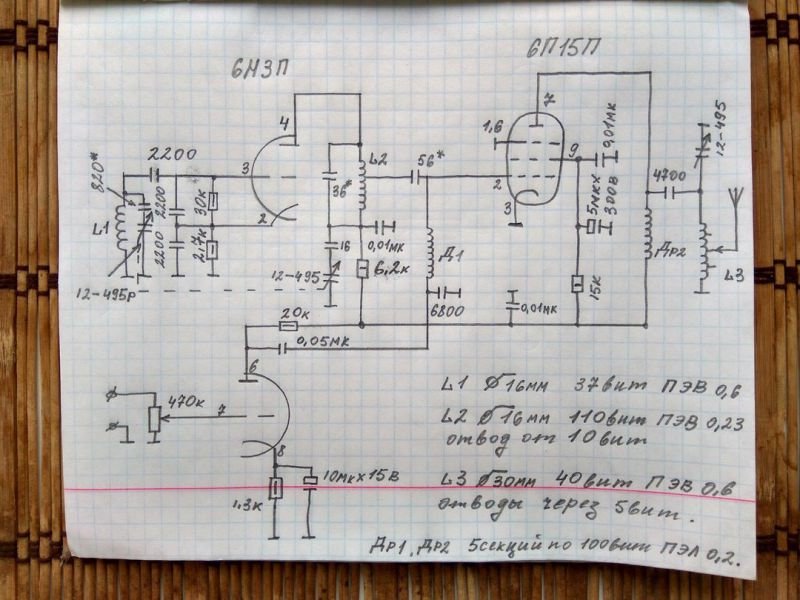 6П15П
6Н3П
7
4
1,6
0,01мк
12-495
2200
820*
3
L2
56*
9
36*
2
4700
30к
5мк х 300В
2200
L1
2
3
2200
2,7к
16
0,01мк
Д1
Др2
L3
12-495
6,2к
15к
12-495р
6800
0,01мк
20к
0,05мк
6
L1 ⌀16мм 37вит ПЭВ 0,6
470к
7
L2 ⌀16мм 110вит ПЭВ 0,23
отвод от 10вит
8
10мк х 15В
L3 ⌀30мм 40вит ПЭВ 0,6
1,3к
отводы через 5вит.
Др1, Др2 5секций по 100вит ПЭЛ 0,2.